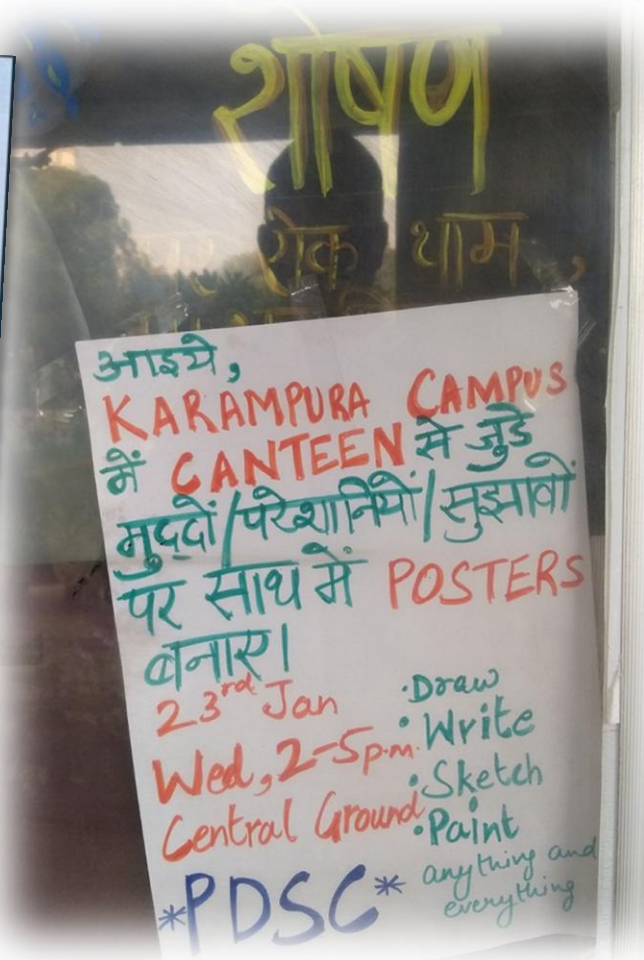 शोषण
रोक थाम,
आइये,
KARAMPURA CAMPUS
में CANTEEN से जुडे
मुद्दों/परेशानियों/सुझावों
पर साथ में POSTERS
बनाए।
23rd Jan
Wed, 2-5p.m.
Central Ground
• Draw
• Write
• Sketch
• Paint
anything and
everything
*PDSC*